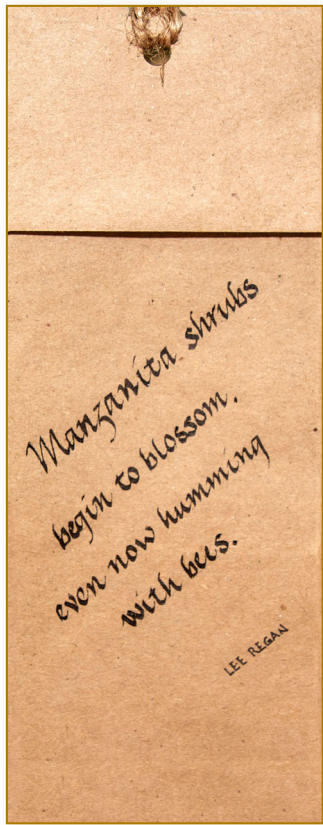 Manzanita shrubs
begin to blossom.
even now humming
with bees.
LEE REGAN